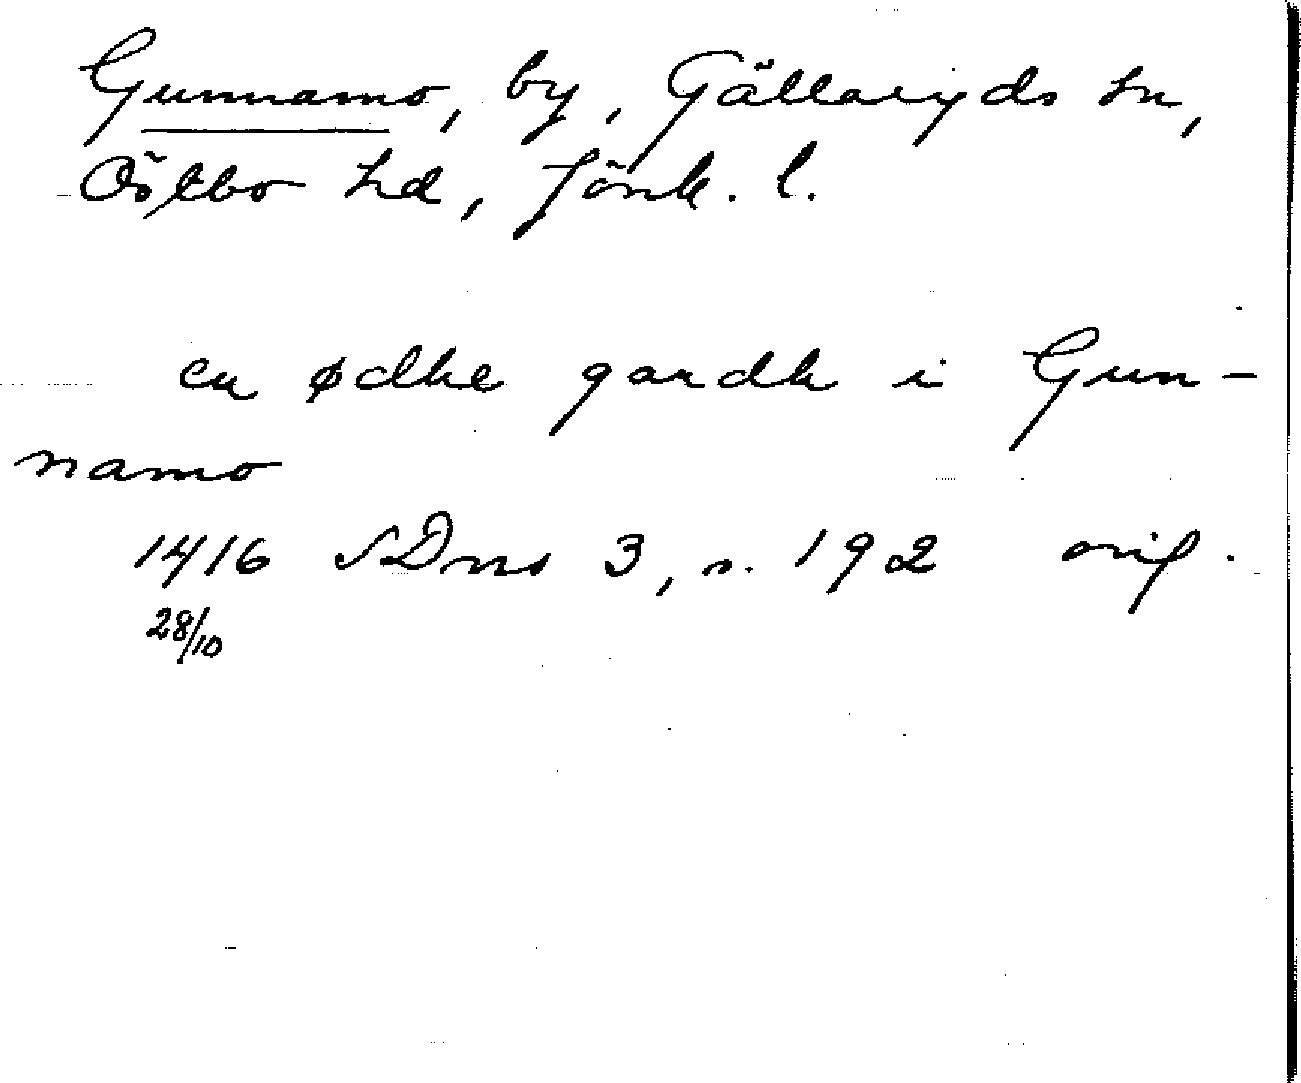 Gunnamo, by, Gällaryds sn,
Östbo hd, Jönk. l.
en ødhe gardh i Gun-
namo
1416 SDns 3, s. 192 orig.
28/10